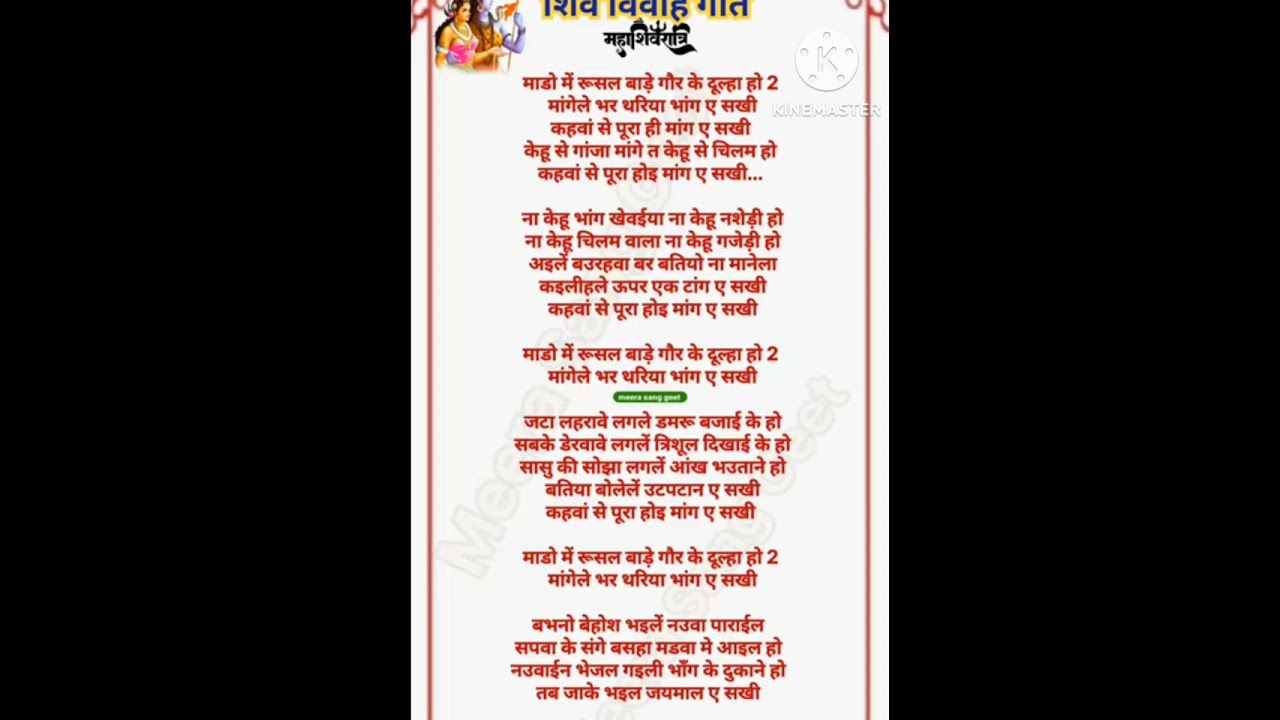 शिव विवाह गीत
महाशिवरात्रि
KINEMASTER
माडो में रूसल बाड़े गौर के दूल्हा हो 2
मांगेले भर थरिया भांग ए सखी
कहवां से पूरा ही मांग ए सखी
केहू से गांजा मांगे त केहू से चिलम हो
कहवां से पूरा होइ मांग ए सखी...
ना केहू भांग खेवईया ना केहू नशेड़ी हो
ना केहू चिलम वाला ना केहू गजेड़ी हो
अइलें बउरहवा बर बतियो ना मानेला
कइलीहले ऊपर एक टांग ए सखी
कहवां से पूरा होइ मांग ए सखी
माडो में रूसल बाड़े गौर के दूल्हा हो 2
मांगेले भर थरिया भांग ए सखी
meera sang geet
जटा लहरावे लगले डमरू बजाई के हो
सबके डेरवावे लगलें त्रिशूल दिखाई के हो
सासु की सोझा लगलें आंख भउताने हो
बतिया बोलेलें उटपटान ए सखी
कहवां से पूरा होइ मांग ए सखी
माडो में रूसल बाड़े गौर के दूल्हा हो 2
मांगेले भर थरिया भांग ए सखी
बभनो बेहोश भइलें नउवा पाराईल
सपवा के संगे बसहा मडवा मे आइल हो
नउवाईन भेजल गइली भाँग के दुकाने हो
तब जाके भइल जयमाल ए सखी
Meera Sang Geet
Meera Sang Geet